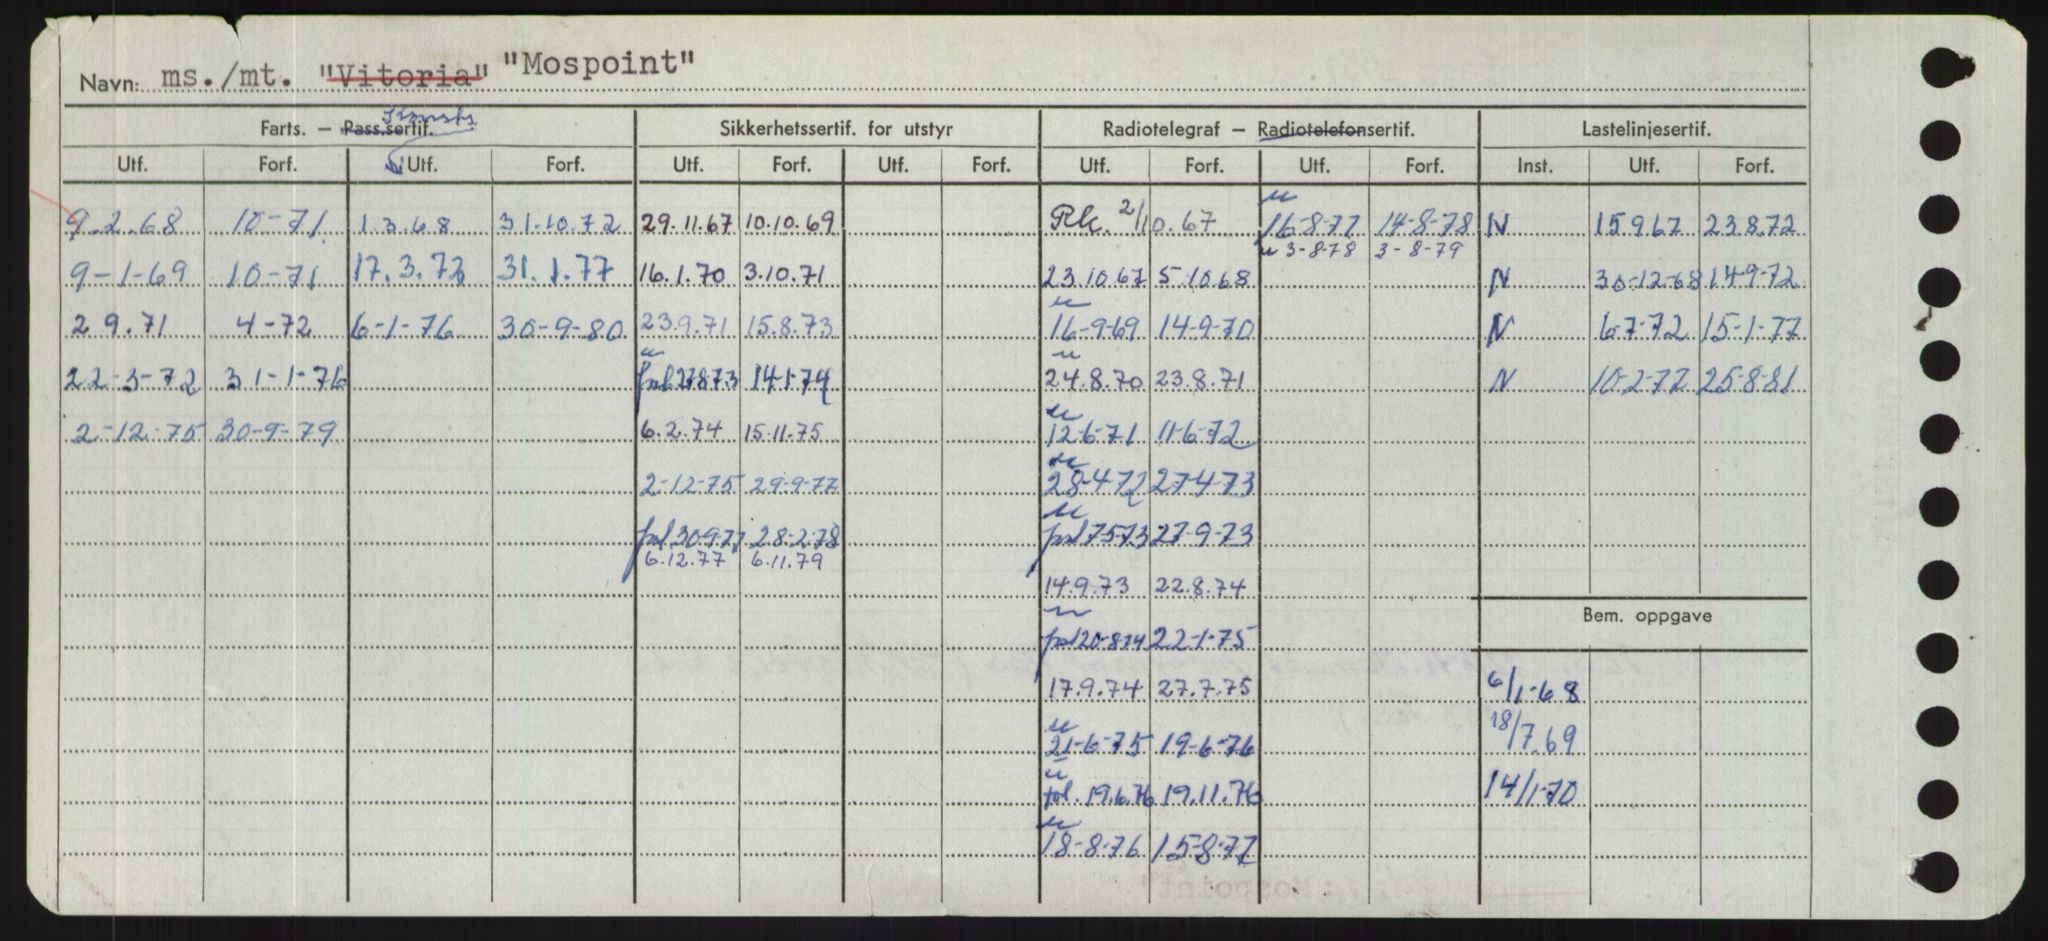 Navn: ms./mt. "Vitoria" "Mospoint"
Farts. — Pass.sertif. Konstr. Sikkerhetssertif. for utstyr Radiotelegraf — Radiotelefonsertif. Lastelinjesertif.
Utf. Forf. Utf. Forf. Utf. Forf. Utf. Forf. Utf. Forf. Utf. Forf. Inst. Utf. Forf.
9.2.68 10-71 1.3.68 31.10.72 29.11.67 10.10.69 Rk. 2/10.67 16-8-77 14-8-78 N 15967 23.8.72
u 3-8-78 3-8-79
9-1-69 10-71 17.3.72 31.1.77 16.1.70 3.10.71 23.10.67 5.10.68 N 30-12-68 14-9-72
2 9.71 4-72 6-1-76 30-9-80 23.9.71 15.8.73 16-9-69 14-9-70 N 6-7-72 15-1-77
22-3-72 31-1-76 14-1-74 24.8.70 23.8.71 N 10-2-77 25-8-81
2-12-75 30-9-79 6.2.74 15.11.75 12-6-71 11-6-72
2-12-75 29-9-77 28-4-72 27-4-73
28-2-78 27-9-73
6.12.77 6.11.79
14.9.73 22.8.74
Bem. oppgave
20-8-74 22-1-75
17.9.74 27.7.75 6/1-68
21-6-75 19-6-76 18/7.69
19.6.76 19.11.76 14/1-70
18-8-76 15-8-77